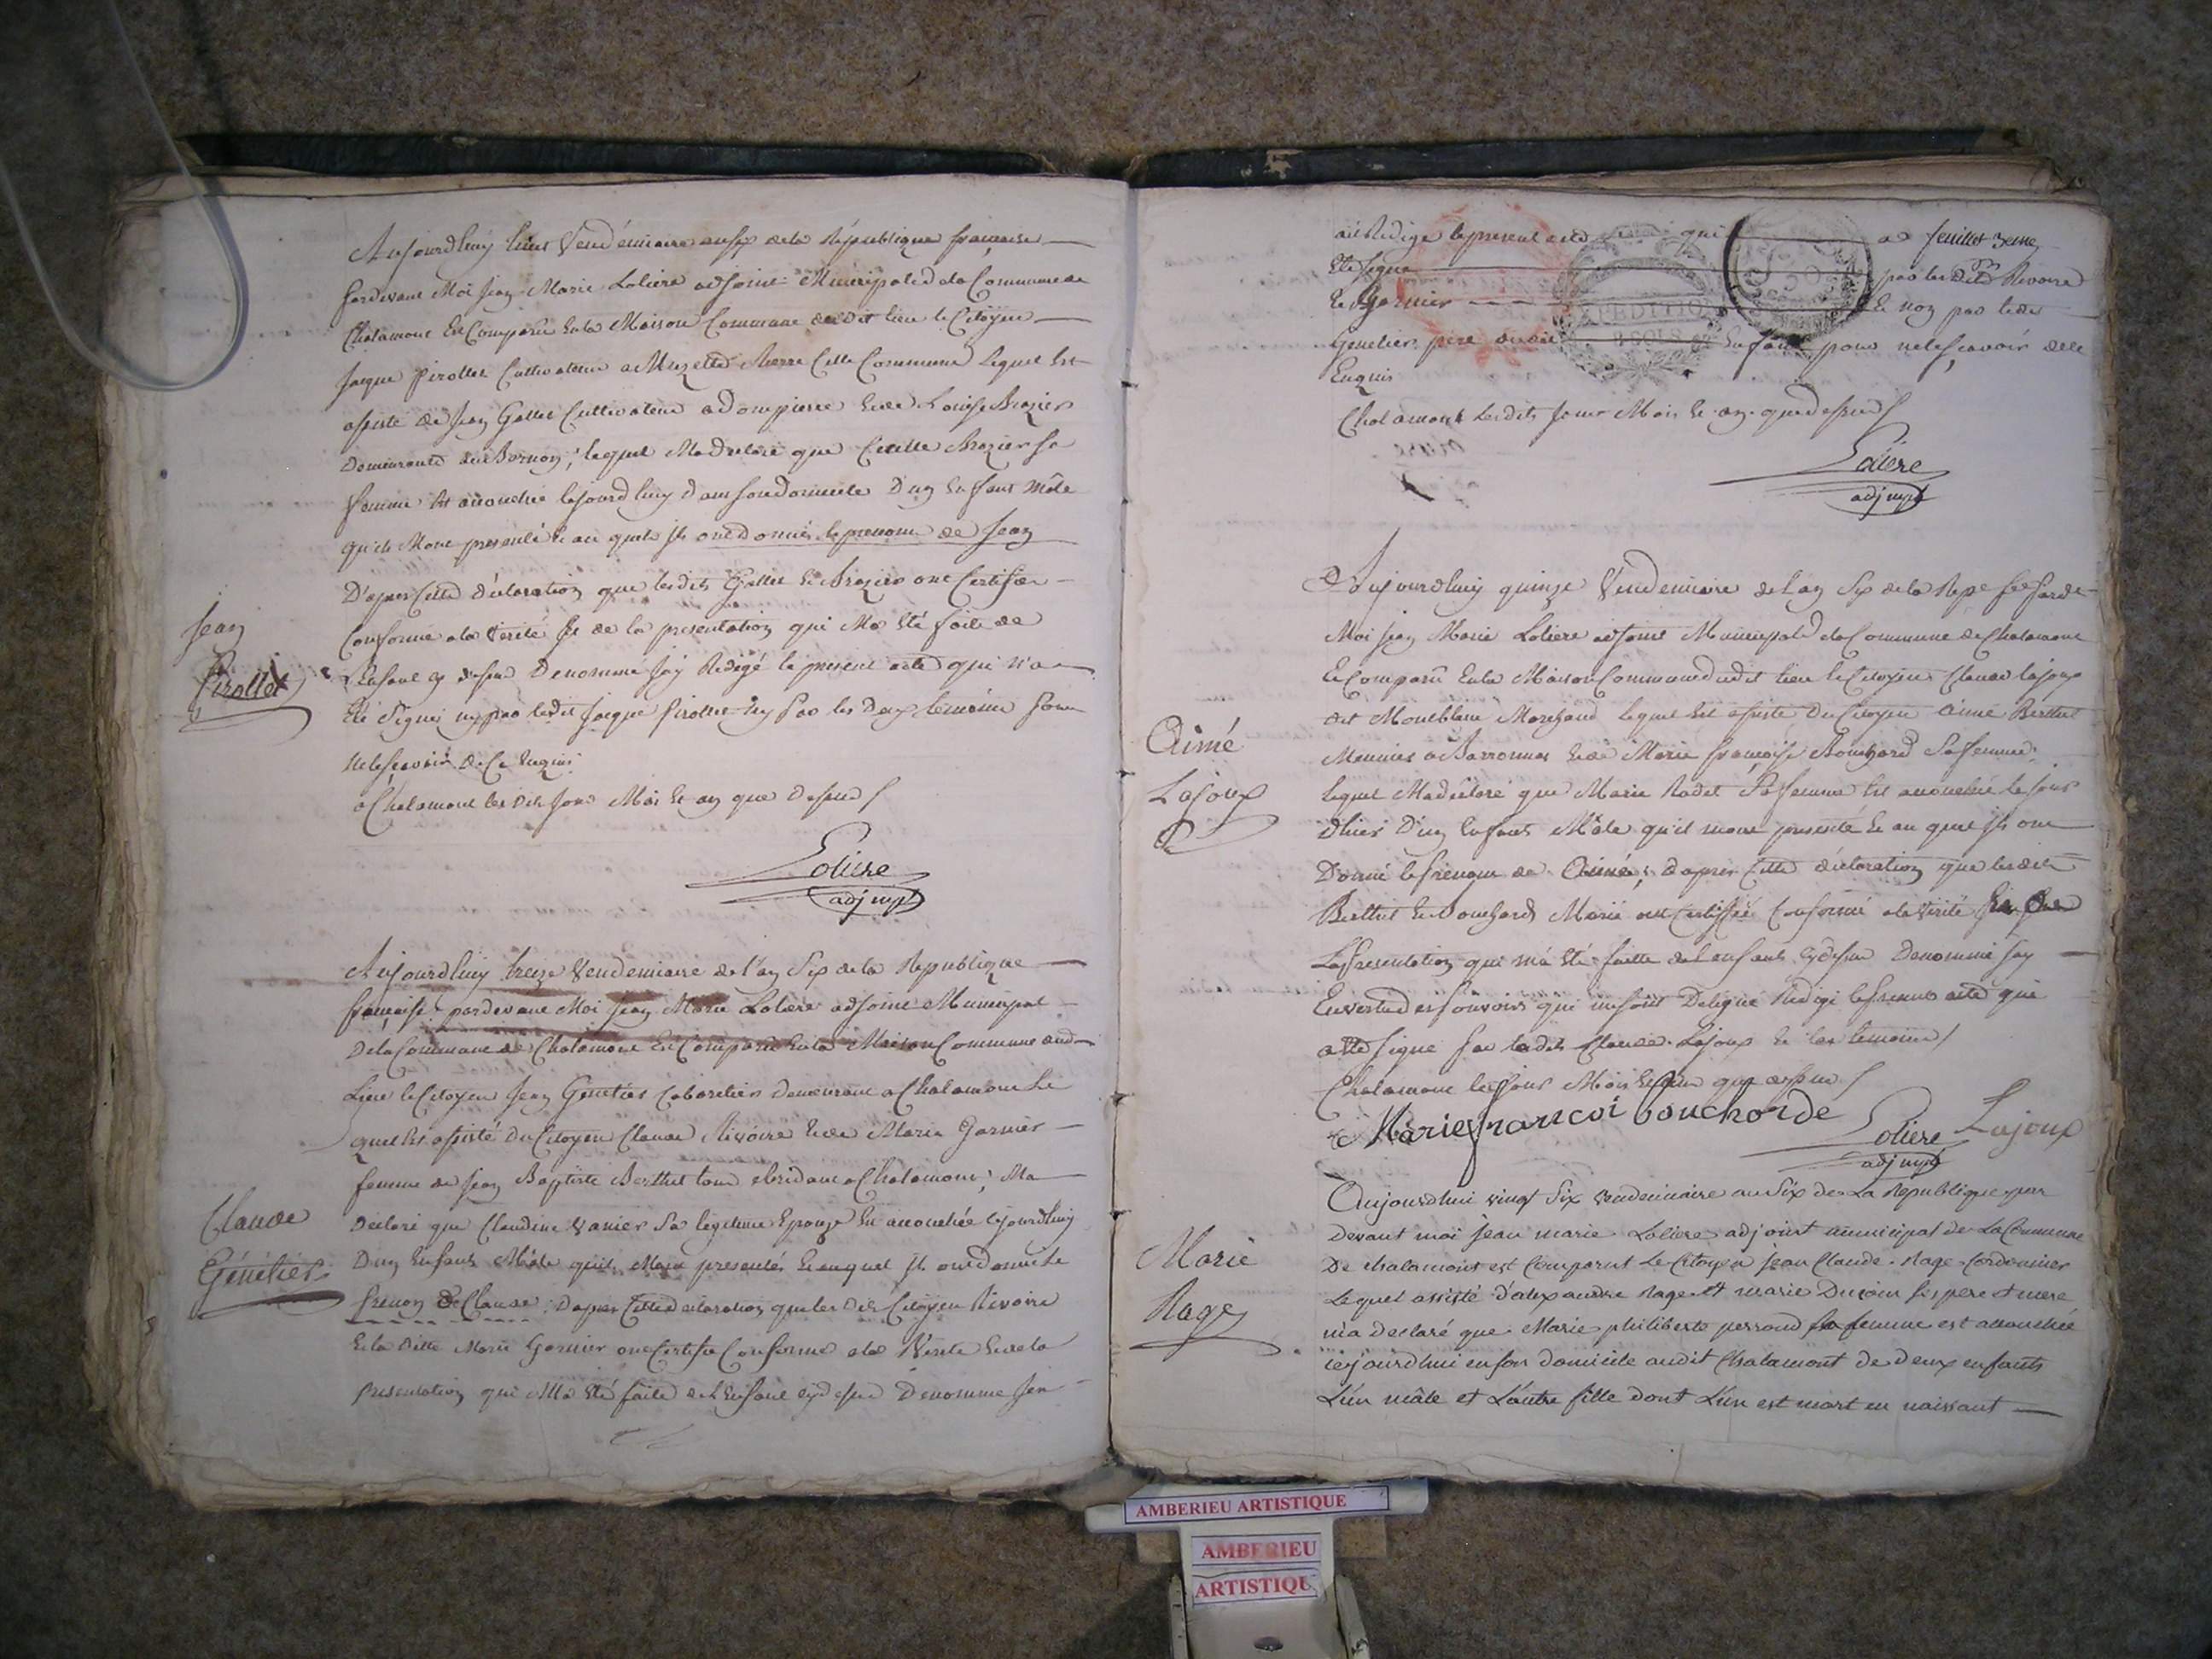 Aujourdhuy huit Vendémiaire an six de la République française
Pardevant Moi Jean Marie Loliere adjoint Municipal de la Commune de
Chalamont Est Comparu En la Maison Commune dudit lieu le Citoyen
Jaque Pirollet Cultivateur a Cette Commune Lequel Est
asisté de Jean Gallet Cultivateur a Dompierre Et de Louise Brazier
Demeurante lequel Ma declaré que Brazier sa
femme Est acouchée cejourdhuy dans son domicile D'un Enfant Mâle
qu'ils Mont presenté Et au quel ils ont donnés le prenom de Jean
D'apres Cette déclaration que lesdits Gallet Et Brazier ont Certifier
Conforme a la Verité Et de la presentation qui Ma Eté faite de
L'Enfant cy dessus Denommé Jay Redigé le present acte qui n'a
Eté Signé ny par ledit Jaque Pirollet ny par les Deux temoins pour
ne le sçavoir De Ce Enquis
a Chalamont les dits Jour Mois Et an que dessus
Jean
Pirollet
Loliere
adj mpl
Aujourdhuy treize Vendemiaire de l'an Six de la Republique
française pardevant Moi Jean Marie Loliere adjoint Municipal
De la Commune de Chalamont Est Comparu En la Maison Commune dud
Lieu le Citoyen Jean Genetier Cabaretier demeurant a Chalamont Le
quel Est asisté du Citoyen Claude Rivoire Et de Marie Garnier
femme de Jean Baptiste Berthet tous residant a Chalamont, Ma
Declaré que Claudine Vanier Sa legitime Epouze Est acouchée cejourdhuy
D'un Enfant Mâle qu'ils Mont presentés Et auquel ils ont donné le
prenom de Claude; D'apres Cette declaration que les dits Citoyen Rivoire
Et la ditte Marie Garnier ont Certifié Conforme a la Verité Et de la
presentation qui Ma Eté faite de L'Enfant cy dessus Denommé Jen
Claude
Génétier
ai Redigé le present acte qui a feuillet 3eme
Eté signé par les dits Rivoire
Et Garnier Et non par ledit
Genetier pere dudit Enfant pour ne le sçavoir de ce
Enquis
Chalamont lesdits Jour Mois Et an que dessus
Loliere
adj mpl
Aujourdhuy quinze Vendemiaire de l'an Six de la Repe fse Pardt
Moi Jean Marie Loliere adjoint Municipal de la Commune de Chalamont
Est Comparû En la Maison Commune dudit lieu le Citoyen Claude Lajoux
dit Montblanc Marchand lequel Est asisté Du Citoyen Aimé Berthet
Meunier a Et de Marie françoise Bouchard Sa femme;
lequel Ma déclaré que Marie Radet Sa femme Est acouchée le jour
d'hier D'un Enfant Mâle qu'il mont presenté Et au quel ils ont
Donné le Prenom de Aimé; d'apres Cette déclaration que lesdits
Berthet Et Bouchard Marie ont Certiffié Conforme a la Vérité
La Presentation qui m'a été faitte de l'enfant cy dessus Denommé Jay
En vertu des Pouvoirs qui me sont Delegué Redigé le Present acte qui
a été signé par ledit Claude Lajoux Et les temoins
Chalamont les Jour Mois Et an que dessus
Aimé
Lajoux
Marie françoi bouchorde
Loliere
adj mpl
Lajoux
Aujourdhui vingt Six vendemiaire an Six de La Republique par
devant moi jean marie Loliere adjoint municipal de La Commune
De chalamont est Comparut Le Citoyen jean Claude Rage Cordonnier
Lequel assisté d'alexandre Rage et marie Ducoin ses pere et mere
m'a declaré que Marie philiberte perroud sa femme est accouchée
cejourdhui en son domicile audit Chalamont de deux enfants
L'un mâle et L'autre fille dont L'un est mort en naissant
Marie
Rage
AMBERIEU ARTISTIQUE
AMBERIEU
ARTISTIQU